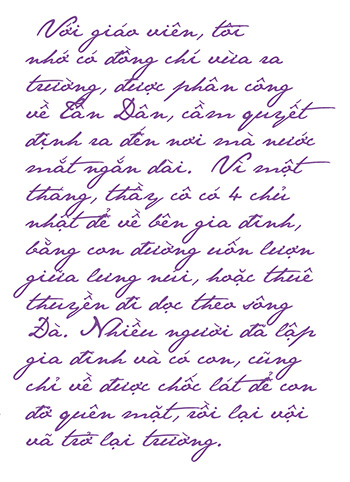 Với giáo viên, tôi
nhớ có đồng chí vừa ra
trường, được phân công
về Tân Dân, cầm quyết
định ra đến nơi mà nước
mắt ngắn dài. Vì một
tháng, thầy cô có 4 chủ
nhật để về bên gia đình,
bằng con đường uốn lượn
giữa lưng núi, hoặc thuê
thuyền đi dọc theo sông
Đà. Nhiều người đã lập
gia đình và có con, cũng
chỉ về được chốc lát để con
đỡ quên mặt, rồi lại vội
vã trở lại trường.